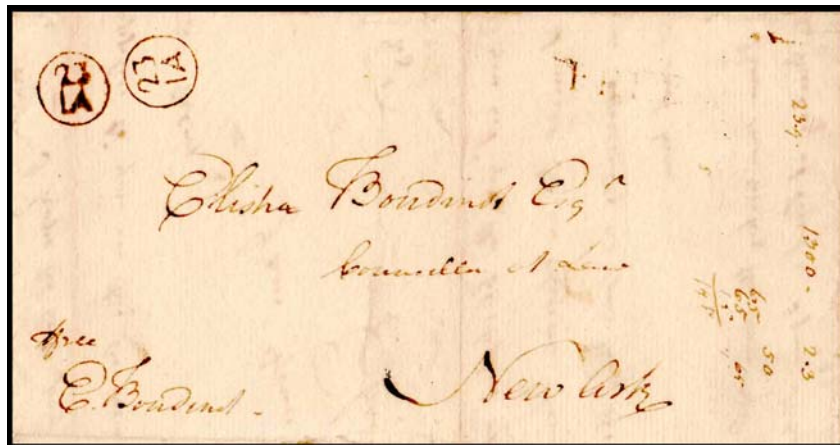 23
IA
23
IA
Elisha Boudinot Esqr
Counsellor at Law
New Ark
free
E. Boudinot
1300 - 23
65 50
65